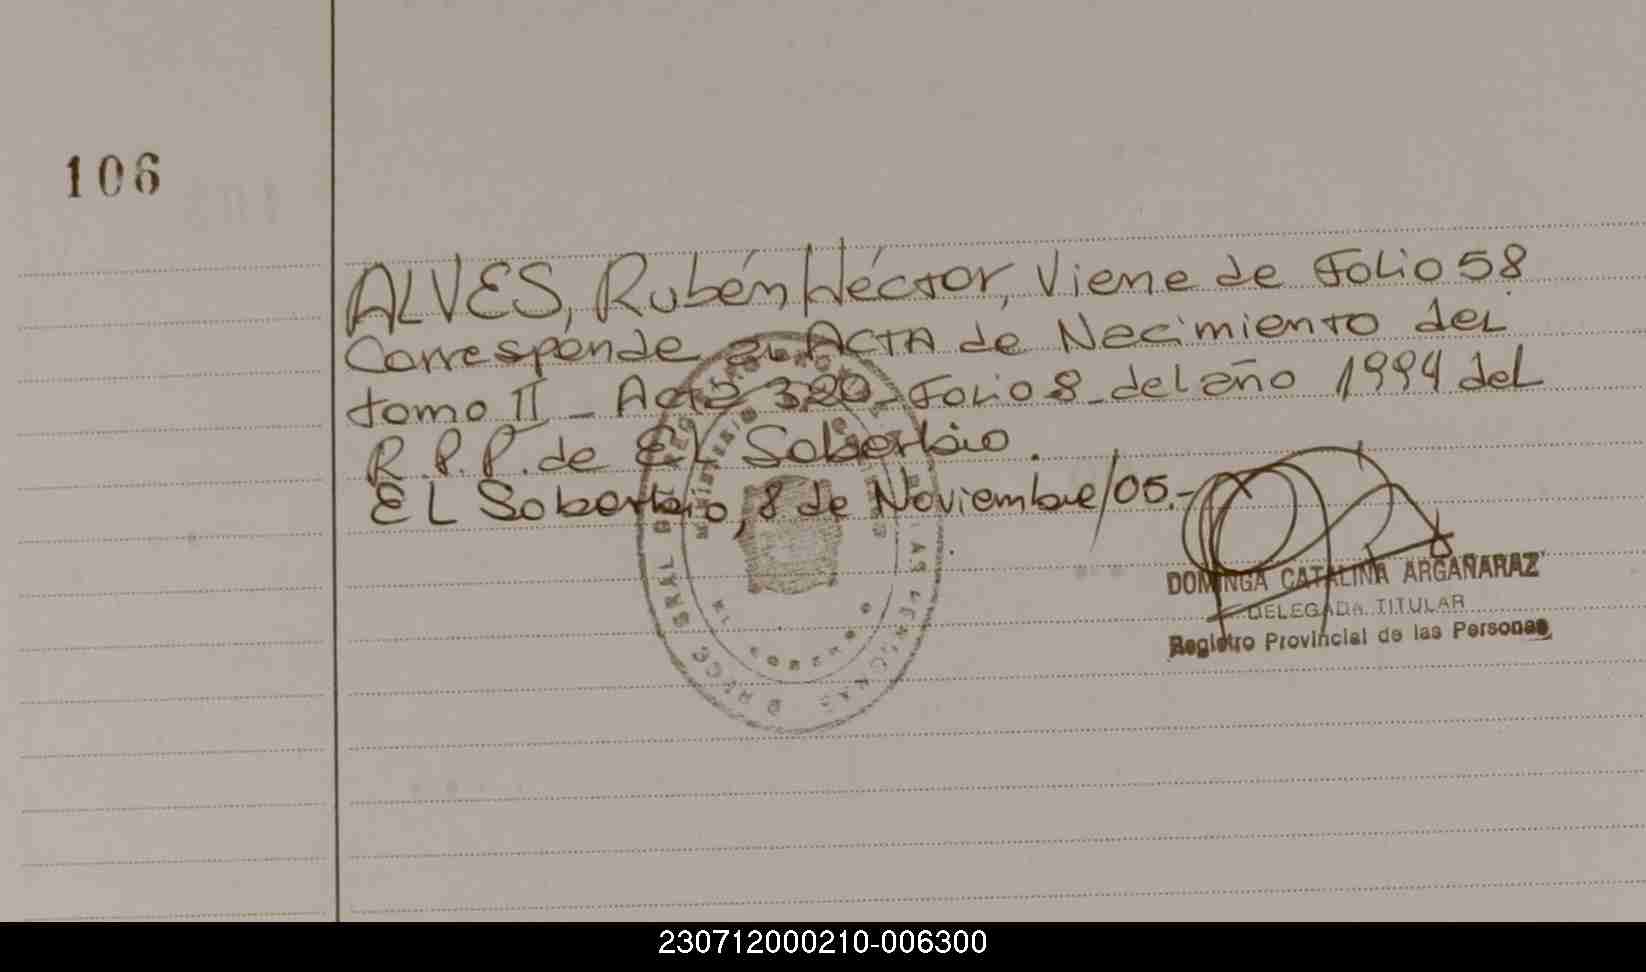 106
ALVES, Rubén Héctor, Viene de Folio 58
Corresponde al ACTA de Nacimiento del
tomo II - Acta 320 - Folio 8 - del año 1994 del
R.P.P. de EL Soberbio.
EL Soberbio, 8 de Noviembre/05.-
DOMINGA CATALINA ARGAÑARAZ
DELEGADA TITULAR
Registro Provincial de las Personas
230712000210-006300